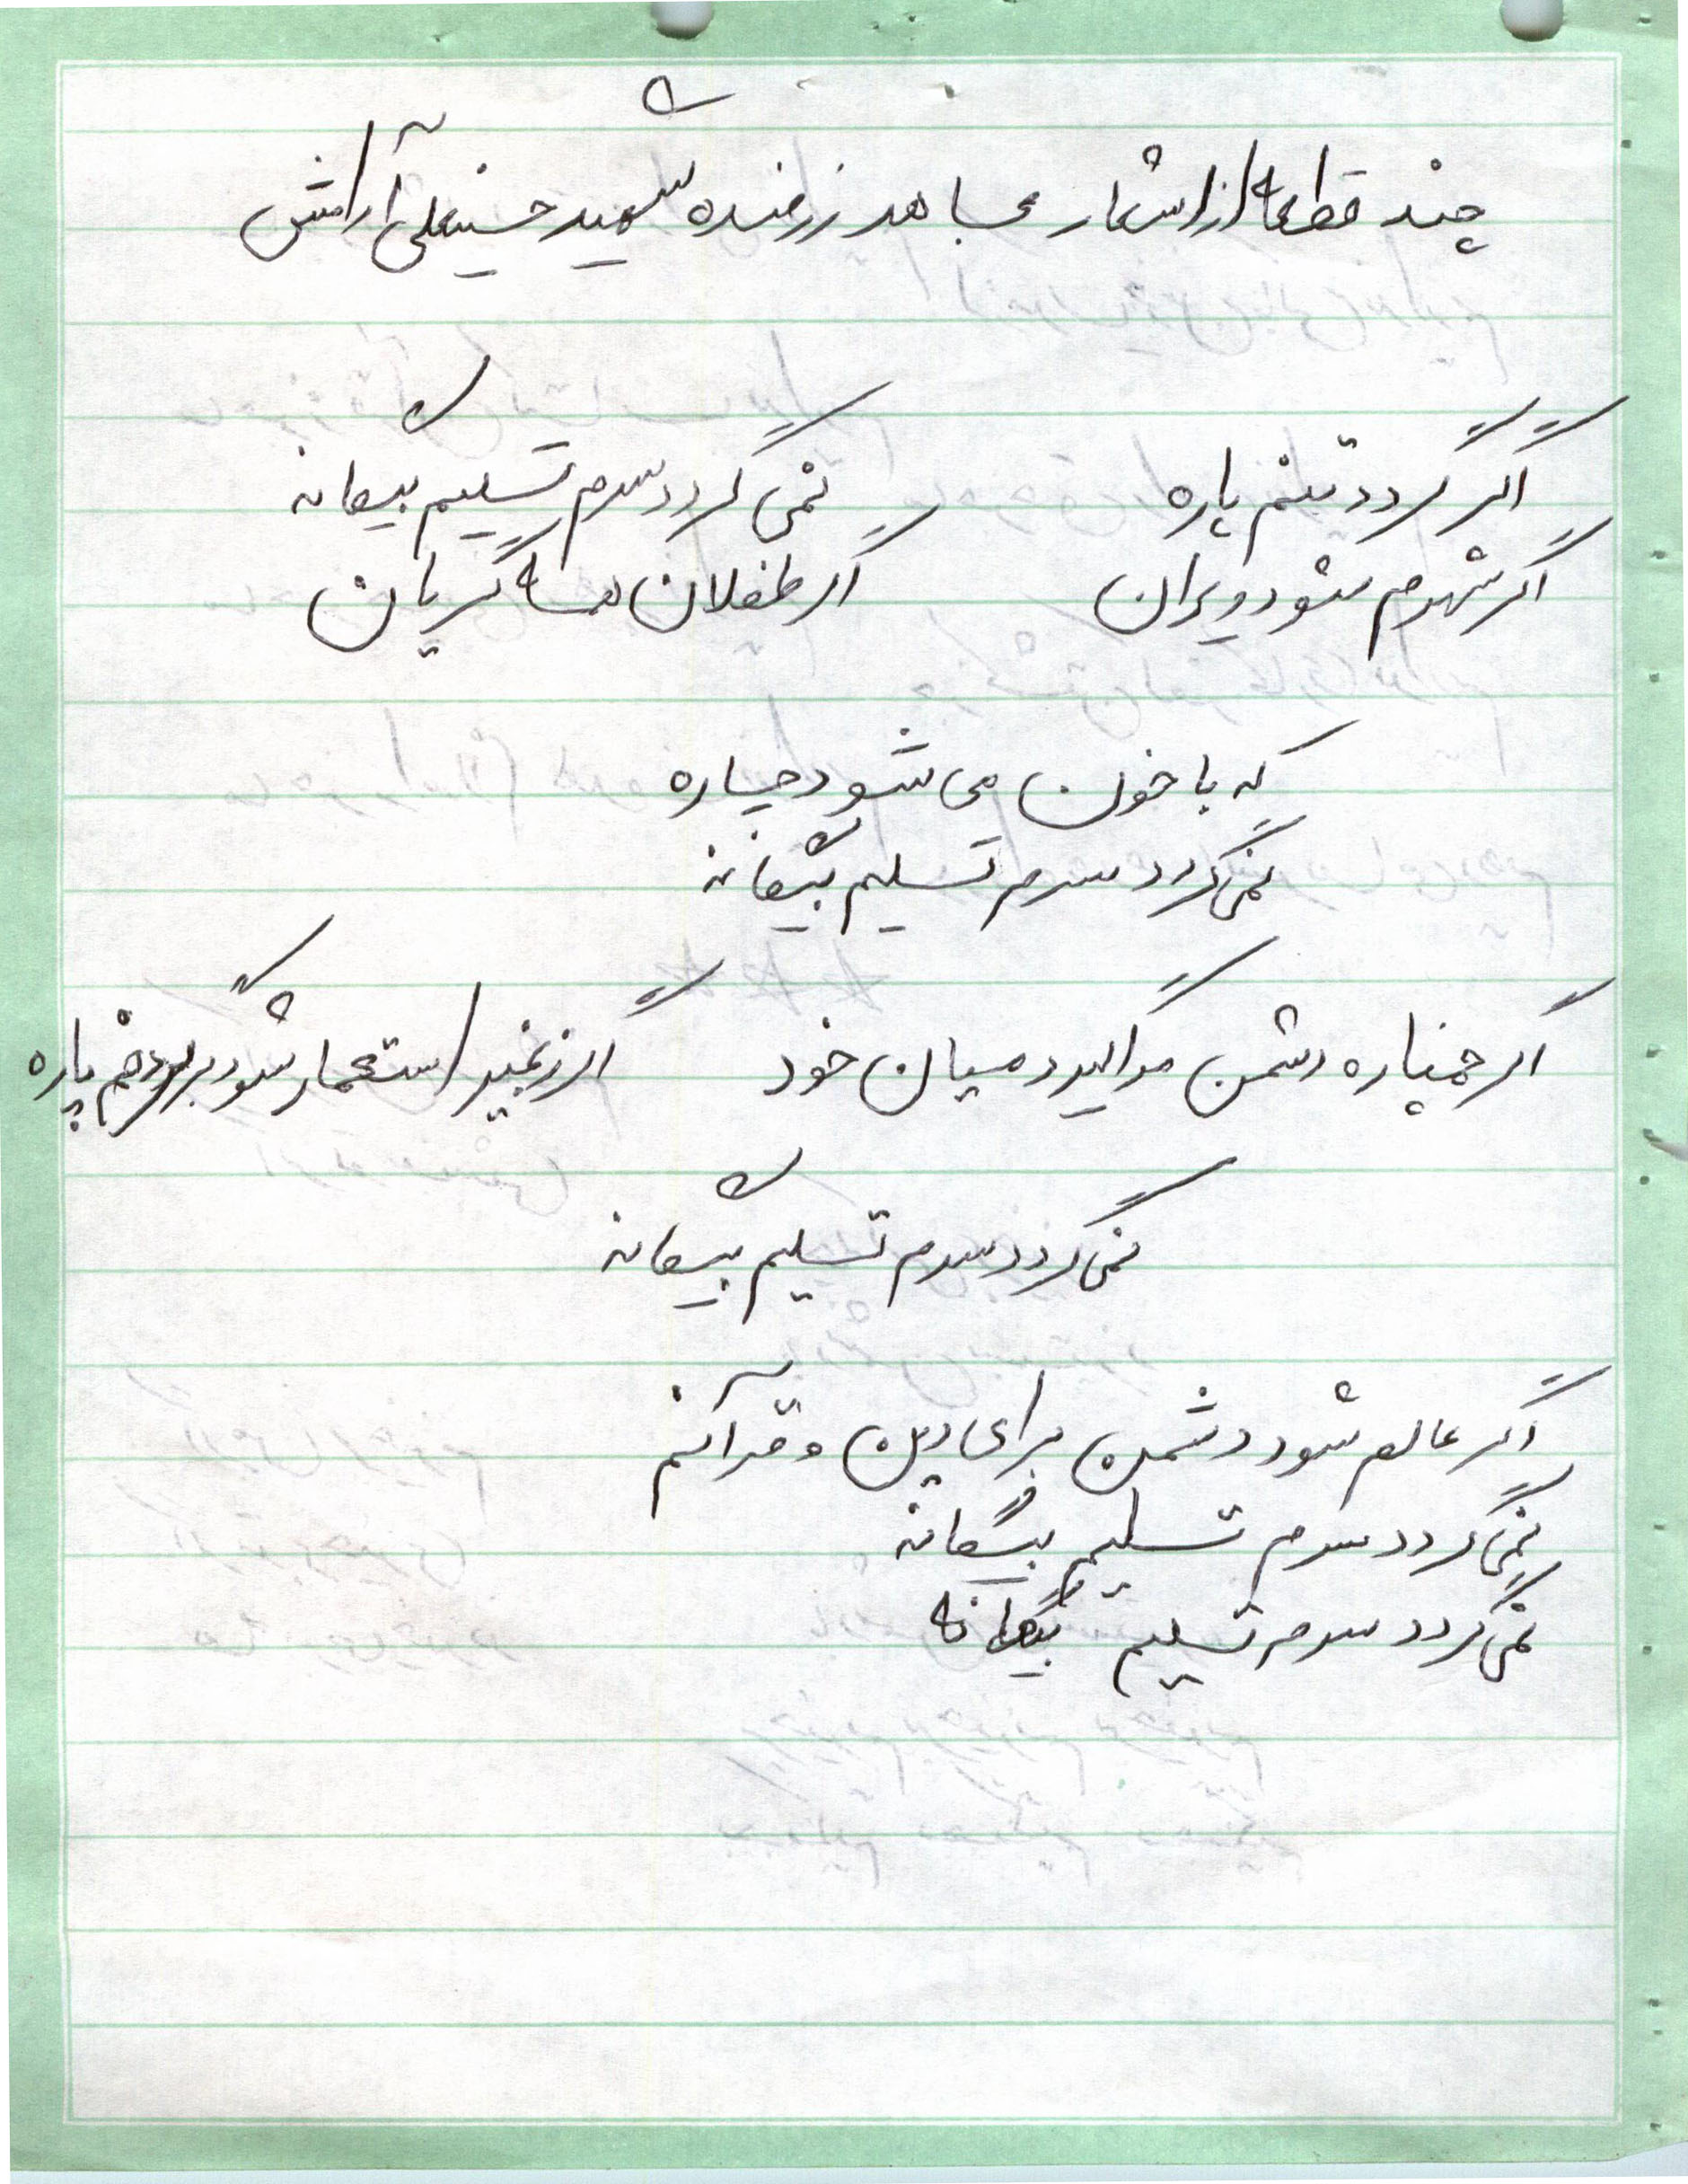 چند قطعه از اشعار مجاهد رزمنده شهید حسینعلی آرامش
اگر گردد تنم پاره نمی گردد سرم تسلیم بیگانه
اگر شهرم شود ویران اگر طفلان همه گریان
که با خون می شود چاره
نمی گردد سرم تسلیم بیگانه
اگر خمپاره دشمن مرا گیرد میان خود اگر زنجیر استعمار شود بر گردنم پاره
نمی گردد سرم تسلیم بیگانه
اگر عالم شود دشمن برای دین و قرآنم
نمی گردد سرم تسلیم بیگانه
نمی گردد سرم تسلیم بیگانه